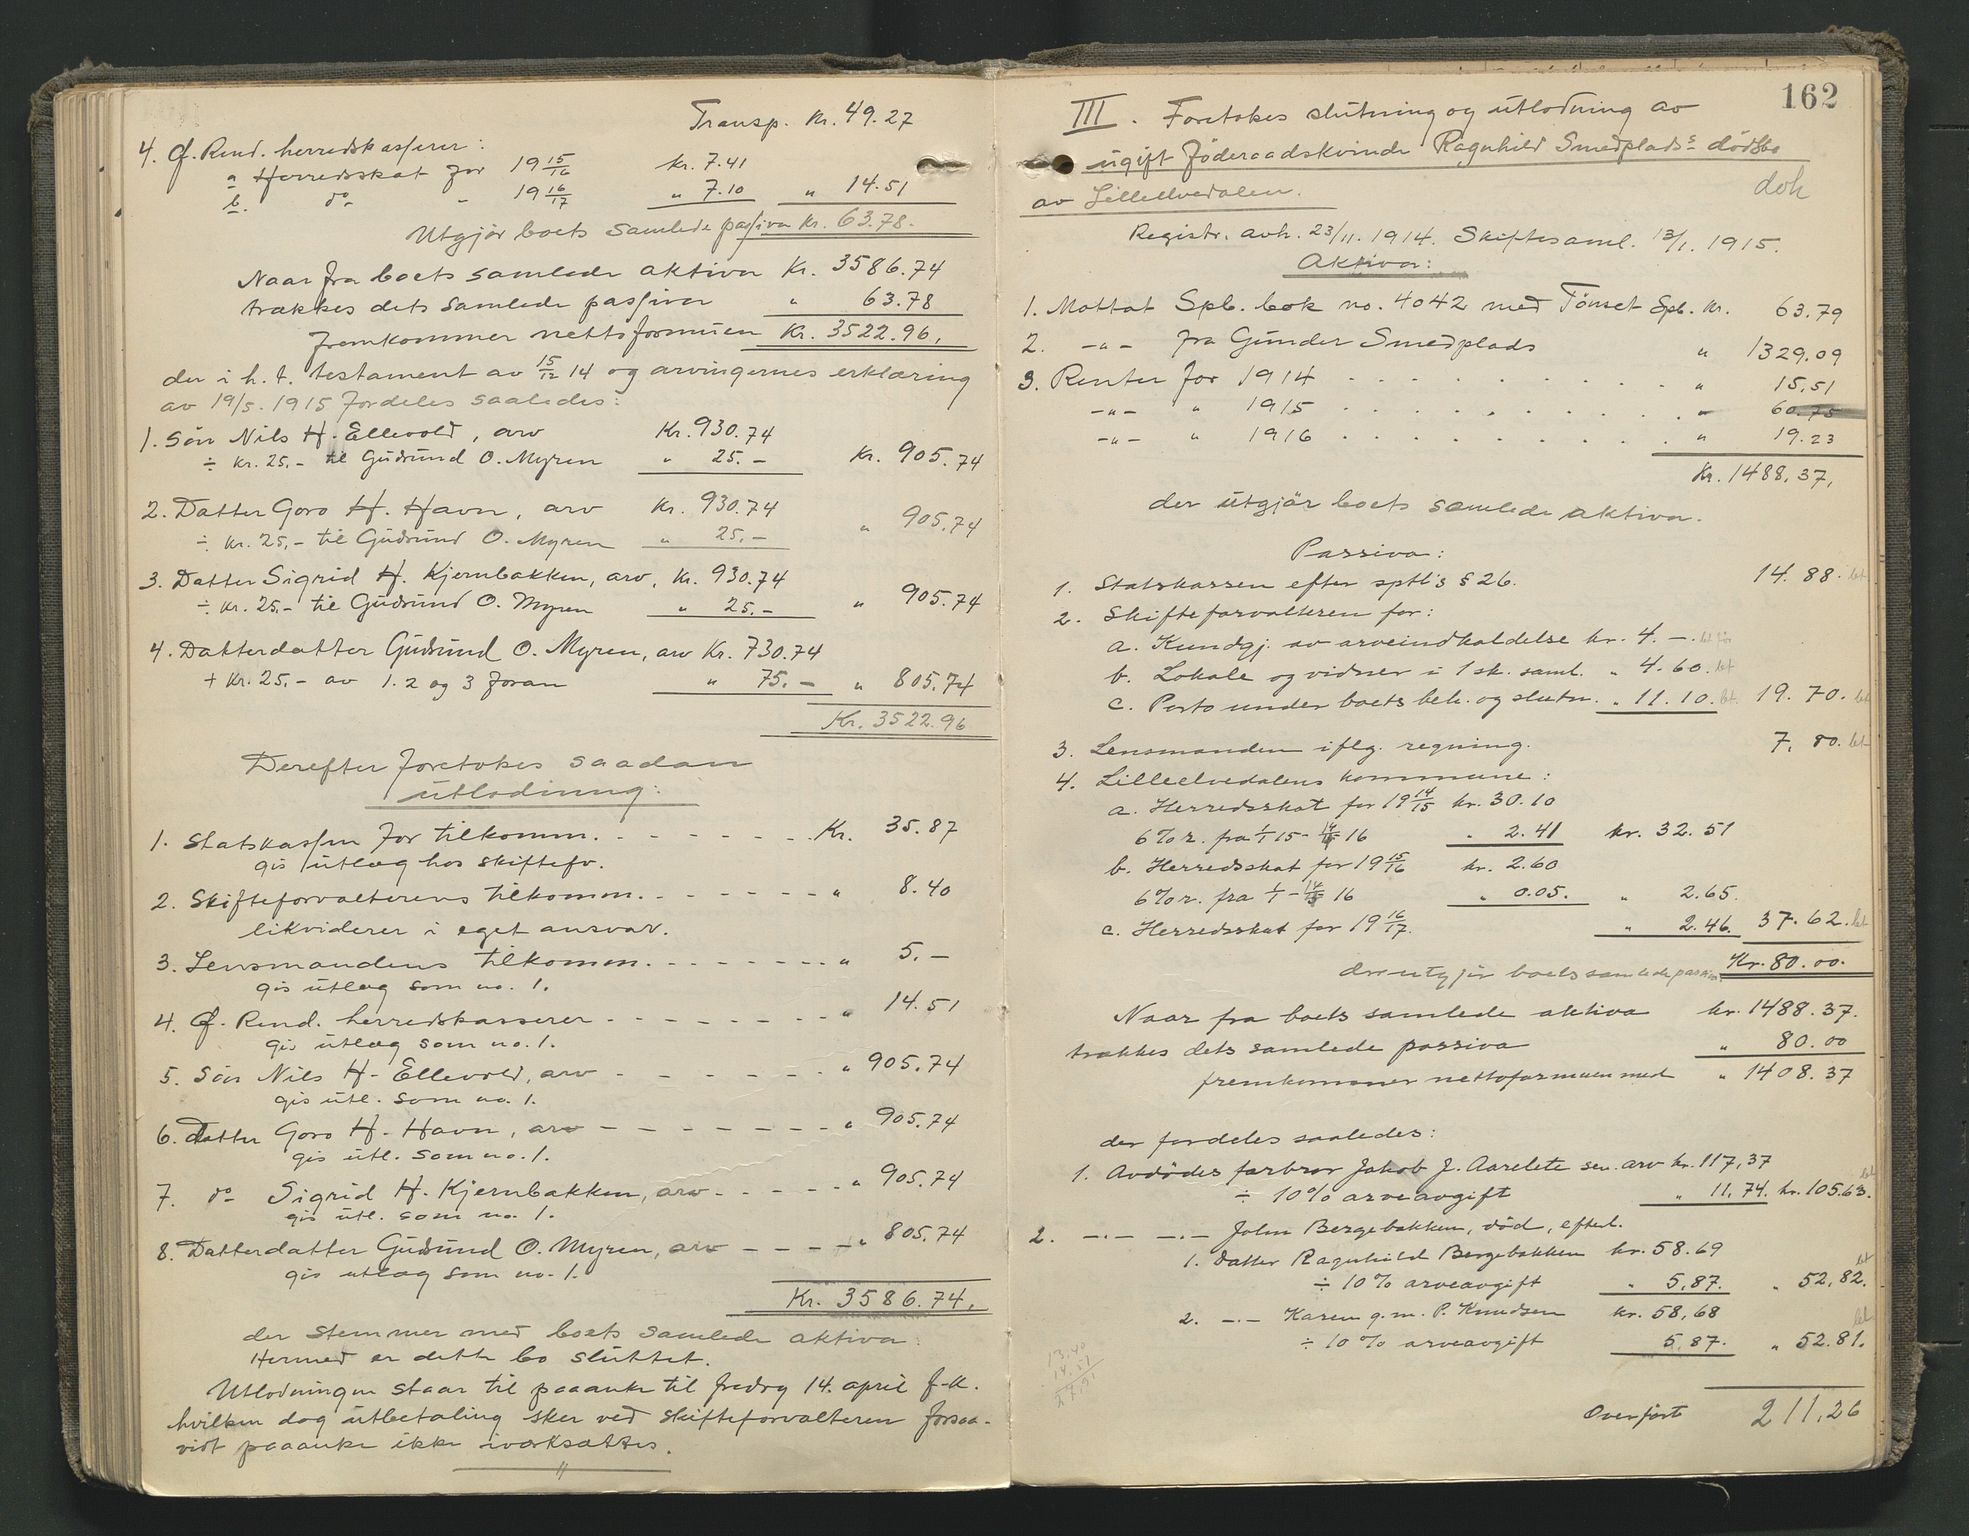 Transp. Kr. 49.27
4. Of. Rend. herredskasserer:
a Herredskat for 19 15/16 Kr. 7.41
b. do - 19 16/17 " 7.10 " 14.51
Utgjör boets samlede passiva Kr. 63.78.
Naar fra boets samlede aktiva Kr. 3586.74
trækkes dets samlede passiva " 63.78
fremkommer nettoformuen Kr. 3522.96,
der i h. t. testament av 15/12 14 og arvingernes erklæring
av 19/5. 1915 fordeles saaledes:
1. Sön Nils H. Ellevold, arv Kr. 930.74
÷ Kr. 25,- til Gudrund O. Myren " 25.- Kr. 905.74
2. Datter Goro H. Havn, arv Kr. 930.74
÷ Kr. 25,- til Gudrund O. Myren " 25,- " 905.74
3. Datter Sigrid H. Kjernbakken, arv, Kr. 930.74
÷ Kr. 25,- til Gudrund O. Myren " 25,- " 905.74
4. Datterdatter Gudrund O. Myren, arv Kr. 730.74
+ Kr. 25,- av 1. 2 og 3 foran " 75.- " 805.74
Kr. 3522.96
Derefter foretokes saadan
utlodning:
1. Statskassen for tilkomm. Kr. 35.87
gis utlæg hos skiftefv.
2. Skifteforvalterens tilkomm. " 8.40
likviderer i eget ansvar.
3. Lensmandens tilkomm. " 5.-
gis utlæg som no. 1.
4. Of. Rend. herredskasserer " 14.51
gis utlæg som no. 1.
5. Sön Nils H. Ellevold, arv " 905.74
gis utl. som no. 1.
6. Datter Goro H. Havn, arv " 905.74
gis utl. som no. 1.
7. do Sigrid H. Kjernbakken, arv " 905.74
gis utl. som no. 1.
8. Datterdatter Gudrund O. Myren, arv " 805.74
gis utlæg som no. 1.
Kr. 3586.74,
der stemmer med boets samlede aktiva.
Hermed er dette bo sluttet.
Utlodningen staar til paaanke til fredag 14. april f.k.
hvilken dag utbetaling sker ved skifteforvalteren forsaa-
vidt paaanke ikke iværksættes.
162
III. Foretokes slutning og utlodning av
ugift föderaadskvinde Ragnhild Smedplads's dödsbo
av Lilleelvedalen.
dok
Registr. avh. 23/11. 1914. Skiftesaml. 13/1. 1915.
Aktiva:
1. Mottat Spb. bok no. 4042 med Tönset Spb. Kr. 63.79
2. -"- fra Gunder Smedplads " 1329.09
3. Renter for 1914 " 15.51
-"- " 1915 " 60.75
-"- " 1916 " 19.23
Kr. 1488.37,
der utgjör boets samlede aktiva.
Passiva:
1. Statskassen efter sptl's § 26. 14.88. bet
2. Skifteforvalteren for:
a. Kundgj. av arveindkaldelse kr. 4.-.
b. Lokale og vidner i 1 sk. saml. " 4.60. bet
c. Porto under boets beh. og slutn. " 11.10. bet. 19.70. bet
3. Lensmanden iflg. regning. 7.80. bet
4. Lilleelvedalens kommune:
a. Herredsskat for 19 14/15 kr. 30.10
6% r. fra 1/1 15 - 16 " 2.41 kr. 32.51
b. Herredsskat for 19 15/16 kr. 2.60
6% r. fra 1/1 - 16 " 0.05. " 2.65.
c. Herredsskat for 19 16/17. " 2.46. 37.62. bet
der utgjör boets samlede passiva Kr. 80.00.
Naar fra boets samlede aktiva kr. 1488.37.
trækkes dets samlede passiva " 80.00
fremkommer nettoformuen med " 1408.37
der fordeles saaledes:
1. Avdödes farbror Jakob J. Aarelete sen. arv kr. 117,37
÷ 10% arveavgift " 11.74. kr. 105.63. bet
2. -.- -.- John Bergebakken, död, efterl.
1. Datter Ragnhild Bergebakken kr. 58.69
÷ 10% arveavgift " 5,87. " 52,82. bet
2. -.- Karen g.m. P. Knudsen kr. 58,68
÷ 10% arveavgift 5,87. " 52.81. bet
13.40
14.51
27.91
Overfört 211,26